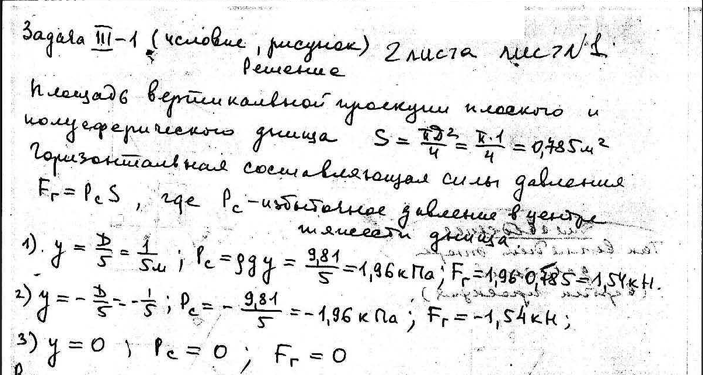 Задача III-1 (условие, рисунок) 2 листа лист №1
Решение
Площадь вертикальной проекции плоского и
полусферического днища S = πD²/4 = π·1/4 = 0,785 м²
Горизонтальная составляющая силы давления
Fг = Pc S, где Pc - избыточное давление в центре
тяжести днища
1). y = D/5 = 1/5 м; Pc = ρgy = 9,81/5 = 1,96 кПа; Fг = 1,96·0,785 = 1,54 кН.
2) y = -D/5 = -1/5; Pc = -9,81/5 = -1,96 кПа; Fг = -1,54 кН;
3) y = 0; Pc = 0; Fг = 0